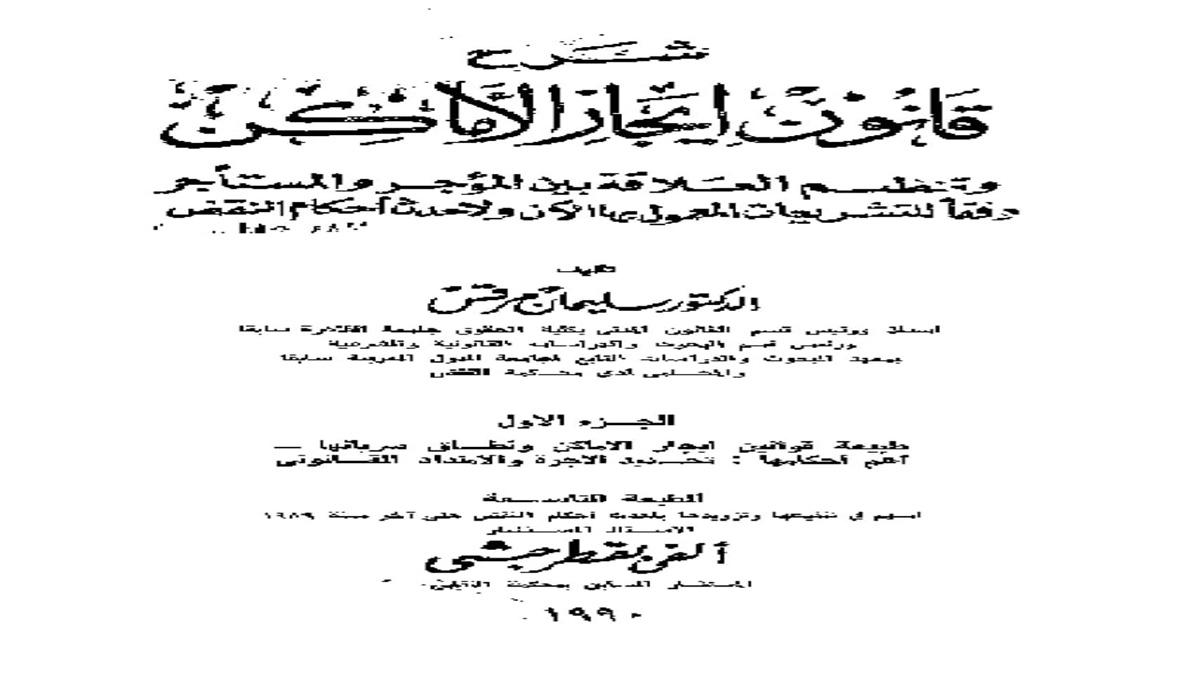 شرح
قانون إيجار الأماكن
وتنظيم العلاقة بين المؤجر والمستأجر
وفقاً للتشريعات المعمول بها الآن ولأحدث أحكام النقض
تأليف
الدكتور سليمان مرقس
استاذ ورئيس قسم القانون المدنى بكلية الحقوق جامعة القاهرة سابقا
ورئيس قسم البحوث والدراسات القانونية والشرعية
بمعهد البحوث والدراسات التابع لجامعة الدول العربية سابقا
والمحامى لدى محكمة النقض
الجزء الاول
طبيعة قوانين ايجار الاماكن ونطاق سريانها —
أهم أحكامها : تحديد الاجرة والامتداد القانونى
الطبعة التاسعة
اسهم في تنقيحها وتزويدها بأحدث أحكام النقض حتى آخر سنة ١٩٨٩
الاستاذ المستشار
ألفى بقطر حبشى
المستشار السابق بمحكمة
١٩٩٠